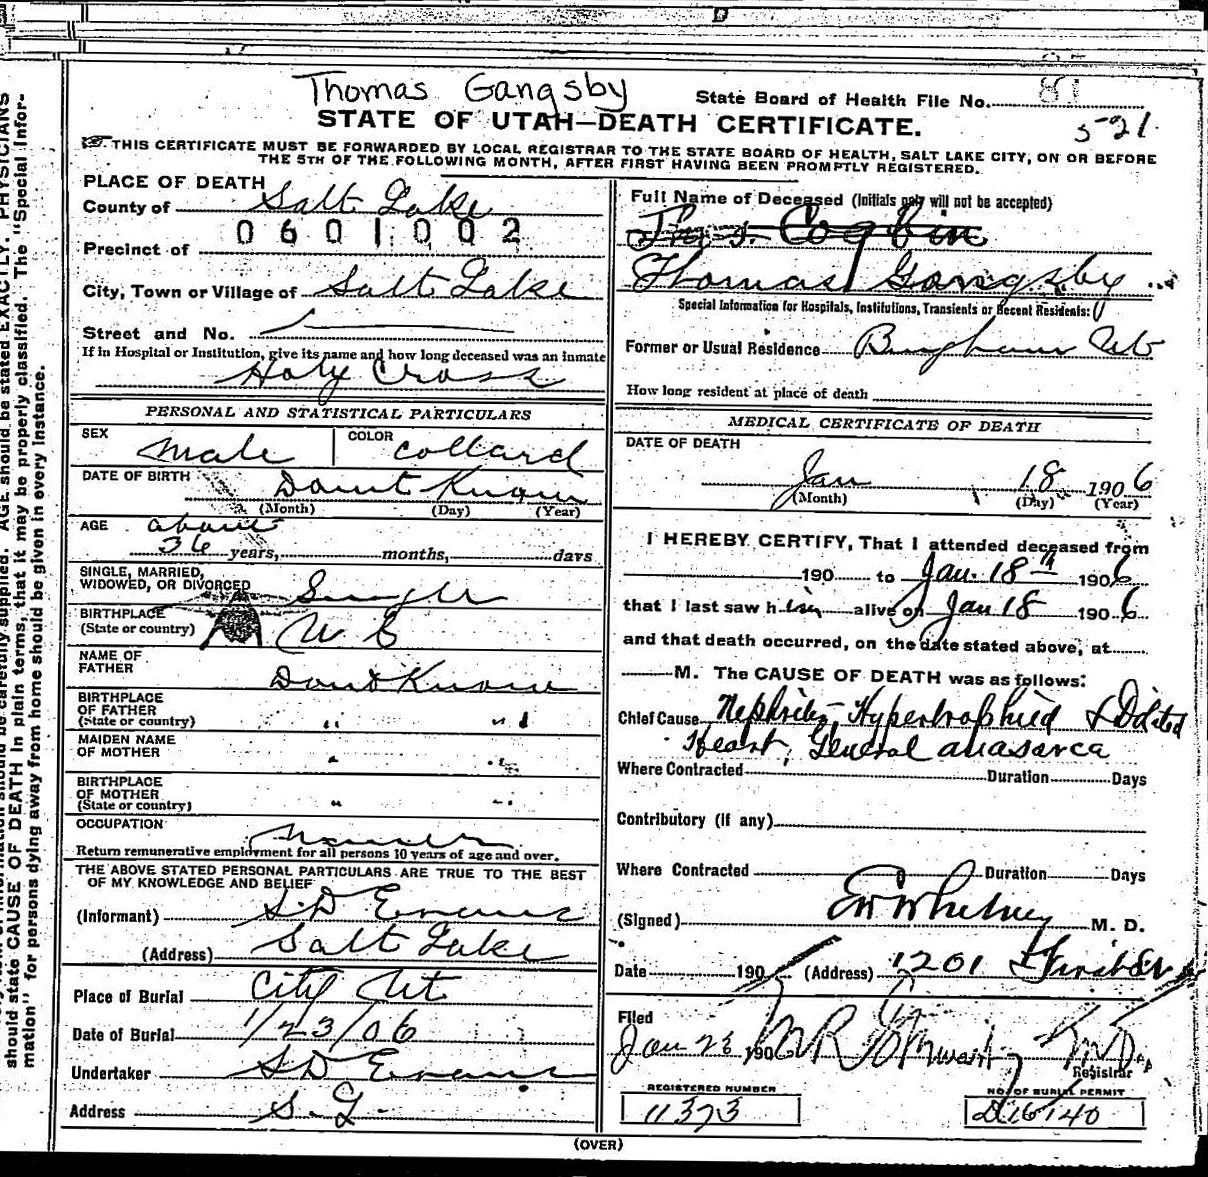 Thomas Gangsby
State Board of Health File No. 81
STATE OF UTAH—DEATH CERTIFICATE.
521
THIS CERTIFICATE MUST BE FORWARDED BY LOCAL REGISTRAR TO THE STATE BOARD OF HEALTH, SALT LAKE CITY, ON OR BEFORE
THE 5TH OF THE FOLLOWING MONTH, AFTER FIRST HAVING BEEN PROMPTLY REGISTERED.
PLACE OF DEATH
County of Salt Lake
0601002
Precinct of
City, Town or Village of Salt Lake
Street and No.
If in Hospital or Institution, give its name and how long deceased was an inmate
Holy Cross
PERSONAL AND STATISTICAL PARTICULARS
SEX male COLOR collard
DATE OF BIRTH Dont Know
(Month) (Day) (Year)
AGE about
36 years, months, days
SINGLE, MARRIED,
WIDOWED, OR DIVORCED Single
BIRTHPLACE
(State or country) U S
NAME OF
FATHER Dont Know
BIRTHPLACE
OF FATHER
(State or country) " "
MAIDEN NAME
OF MOTHER " "
BIRTHPLACE
OF MOTHER
(State or country) " "
OCCUPATION
Return remunerative employment for all persons 10 years of age and over.
THE ABOVE STATED PERSONAL PARTICULARS ARE TRUE TO THE BEST
OF MY KNOWLEDGE AND BELIEF
(Informant) S.D Evans
(Address) Salt Lake
Place of Burial City Ut
Date of Burial 1/23/06
Undertaker S D Evans
Address S. L
Full Name of Deceased (Initials only will not be accepted)
Thos. Cogbin
Thomas Gangsby
Special Information for Hospitals, Institutions, Transients or Recent Residents:
Former or Usual Residence Bingham Ut
How long resident at place of death
MEDICAL CERTIFICATE OF DEATH
DATE OF DEATH
Jan 18 1906
(Month) (Day) (Year)
I HEREBY CERTIFY, That I attended deceased from
190 to Jan. 18th 1906
that I last saw him alive on Jan 18 1906
and that death occurred, on the date stated above, at
M. The CAUSE OF DEATH was as follows:
Chief Cause Nephritis, Hypertrophied & Dilated
Heart, General anasarca
Where Contracted Duration Days
Contributory (if any)
Where Contracted Duration Days
(Signed) EW Whitney M. D.
Date 190 (Address) 1201
Filed
Jan 23 1906 M R Stewart M.D.
Registrar
REGISTERED NUMBER
11373
NO. OF BURIAL PERMIT
D16140
(OVER)
AGE should be stated EXACTLY. PHYSICIANS
should state CAUSE OF DEATH in plain terms, that it may be properly classified. The "Special Infor-
mation" for persons dying away from home should be given in every instance.